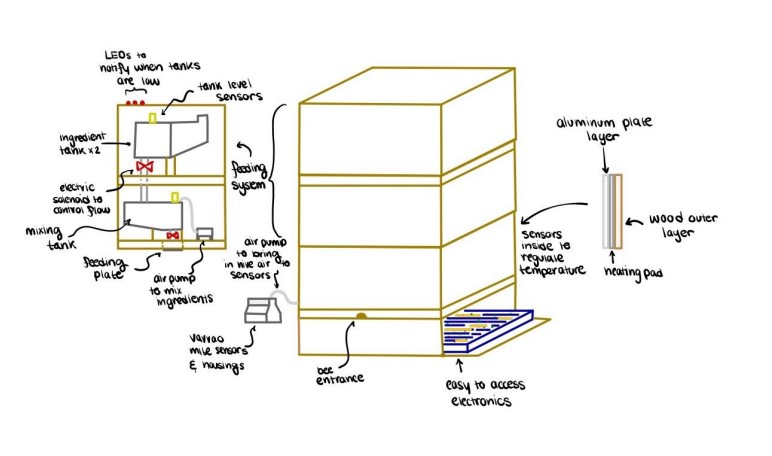 LEDs to
notify when tanks
are low
tank level
sensors
ingredient
tank x2
electric
solenoid to
control flow
mixing
tank
feeding
plate
air pump
to mix
ingredients
feeding
sysem
air pump
to bring
in hive air to
sensors
varrao
mite sensors
& housings
bee
entrance
easy to access
electronics
sensors
inside to
regulate
temperature
aluminum plate
layer
wood outer
layer
heating pad